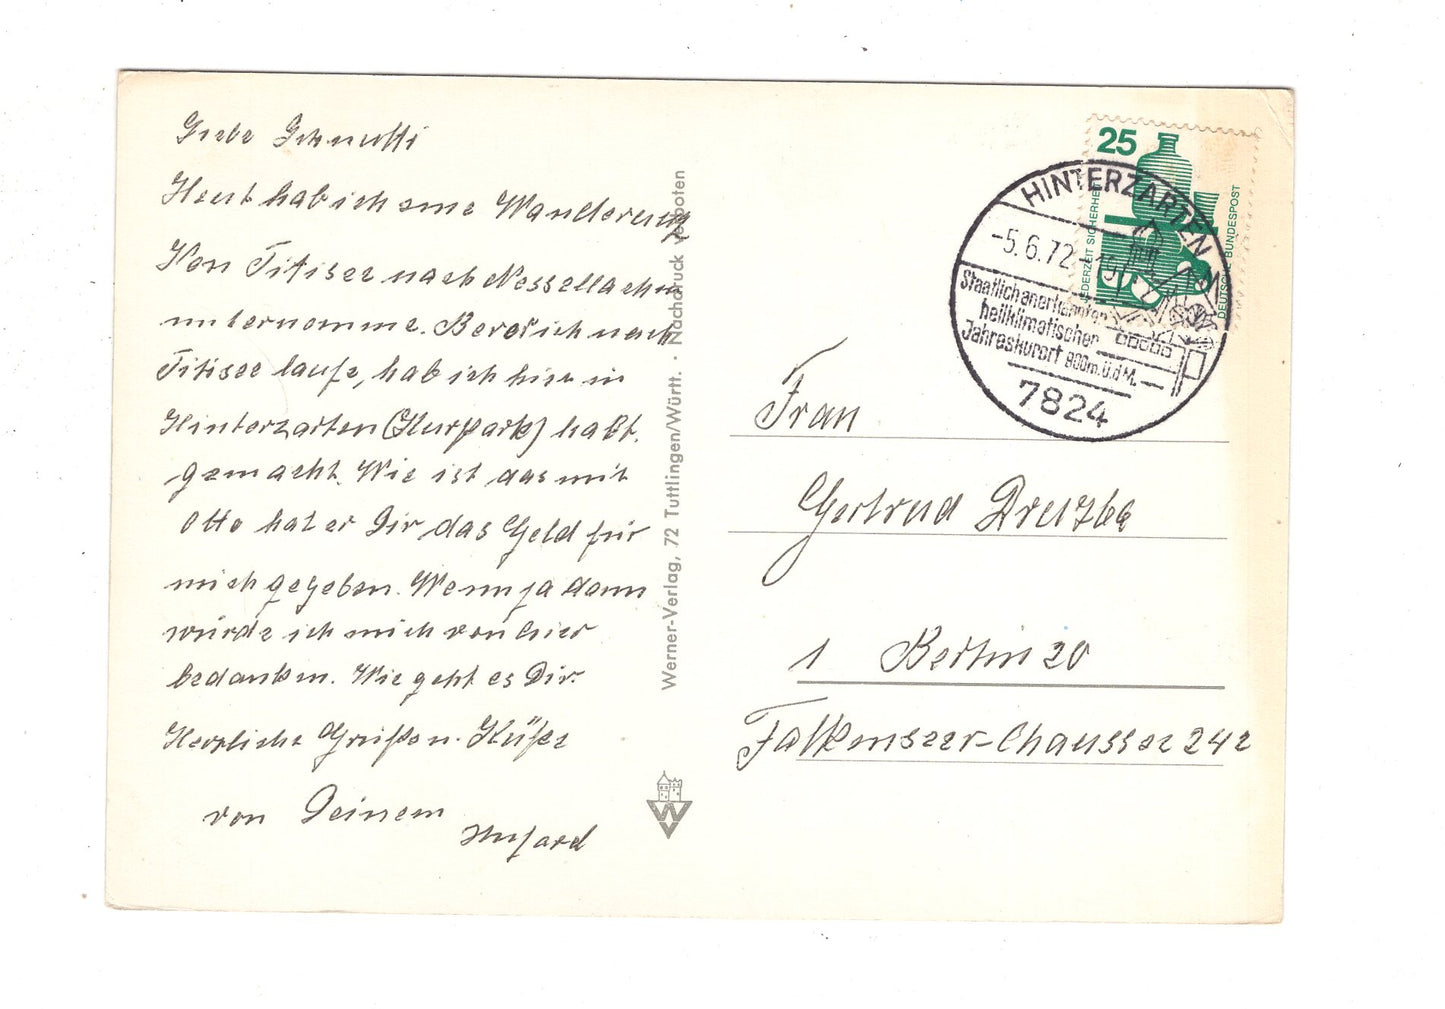 Liebe Schnutti
Heut hab ich eine Wanderung
Von Titisee nach Nessellachen
unternomme. Bevor ich nach
Titisee laufe, hab ich hier in
Hinterzarten (Kurpark) halt.
gemacht. Wie ist das mit
Otto hat er Dir das Geld für
mich gegeben. Wenn ja dann
würde ich mich von hier
bedanken. Wie geht es Dir.
Herzliche Grüße u. Küße
von Deinem
Werner-Verlag, 72 Tuttlingen/Württ. · Nachdruck verboten
W
25
JEDERZEIT SICHERHEIT
DEUTSCHE BUNDESPOST
HINTERZARTEN
-5.6.72-
Staatlich anerkannter
heilklimatischer
Jahreskurort 900m.ü.d M.
7824
Frau
Gertrud
1 Berlin 20
Falkenseer-Chaussee 242